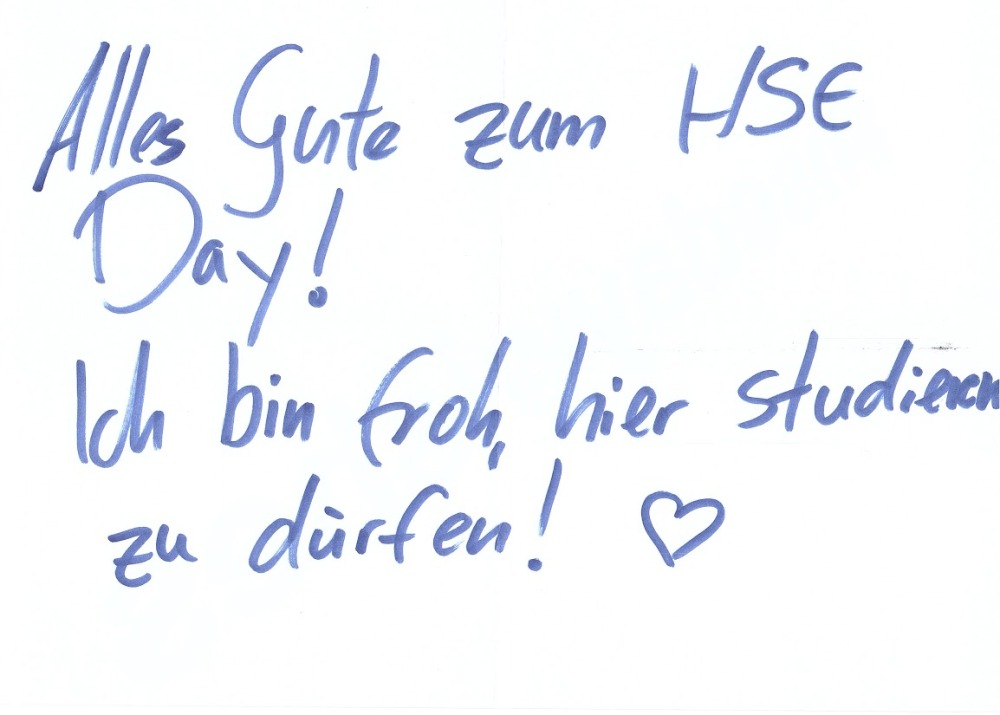 Alles Gute zum HSE
Day!
Ich bin froh, hier studieren
zu dürfen! ♡